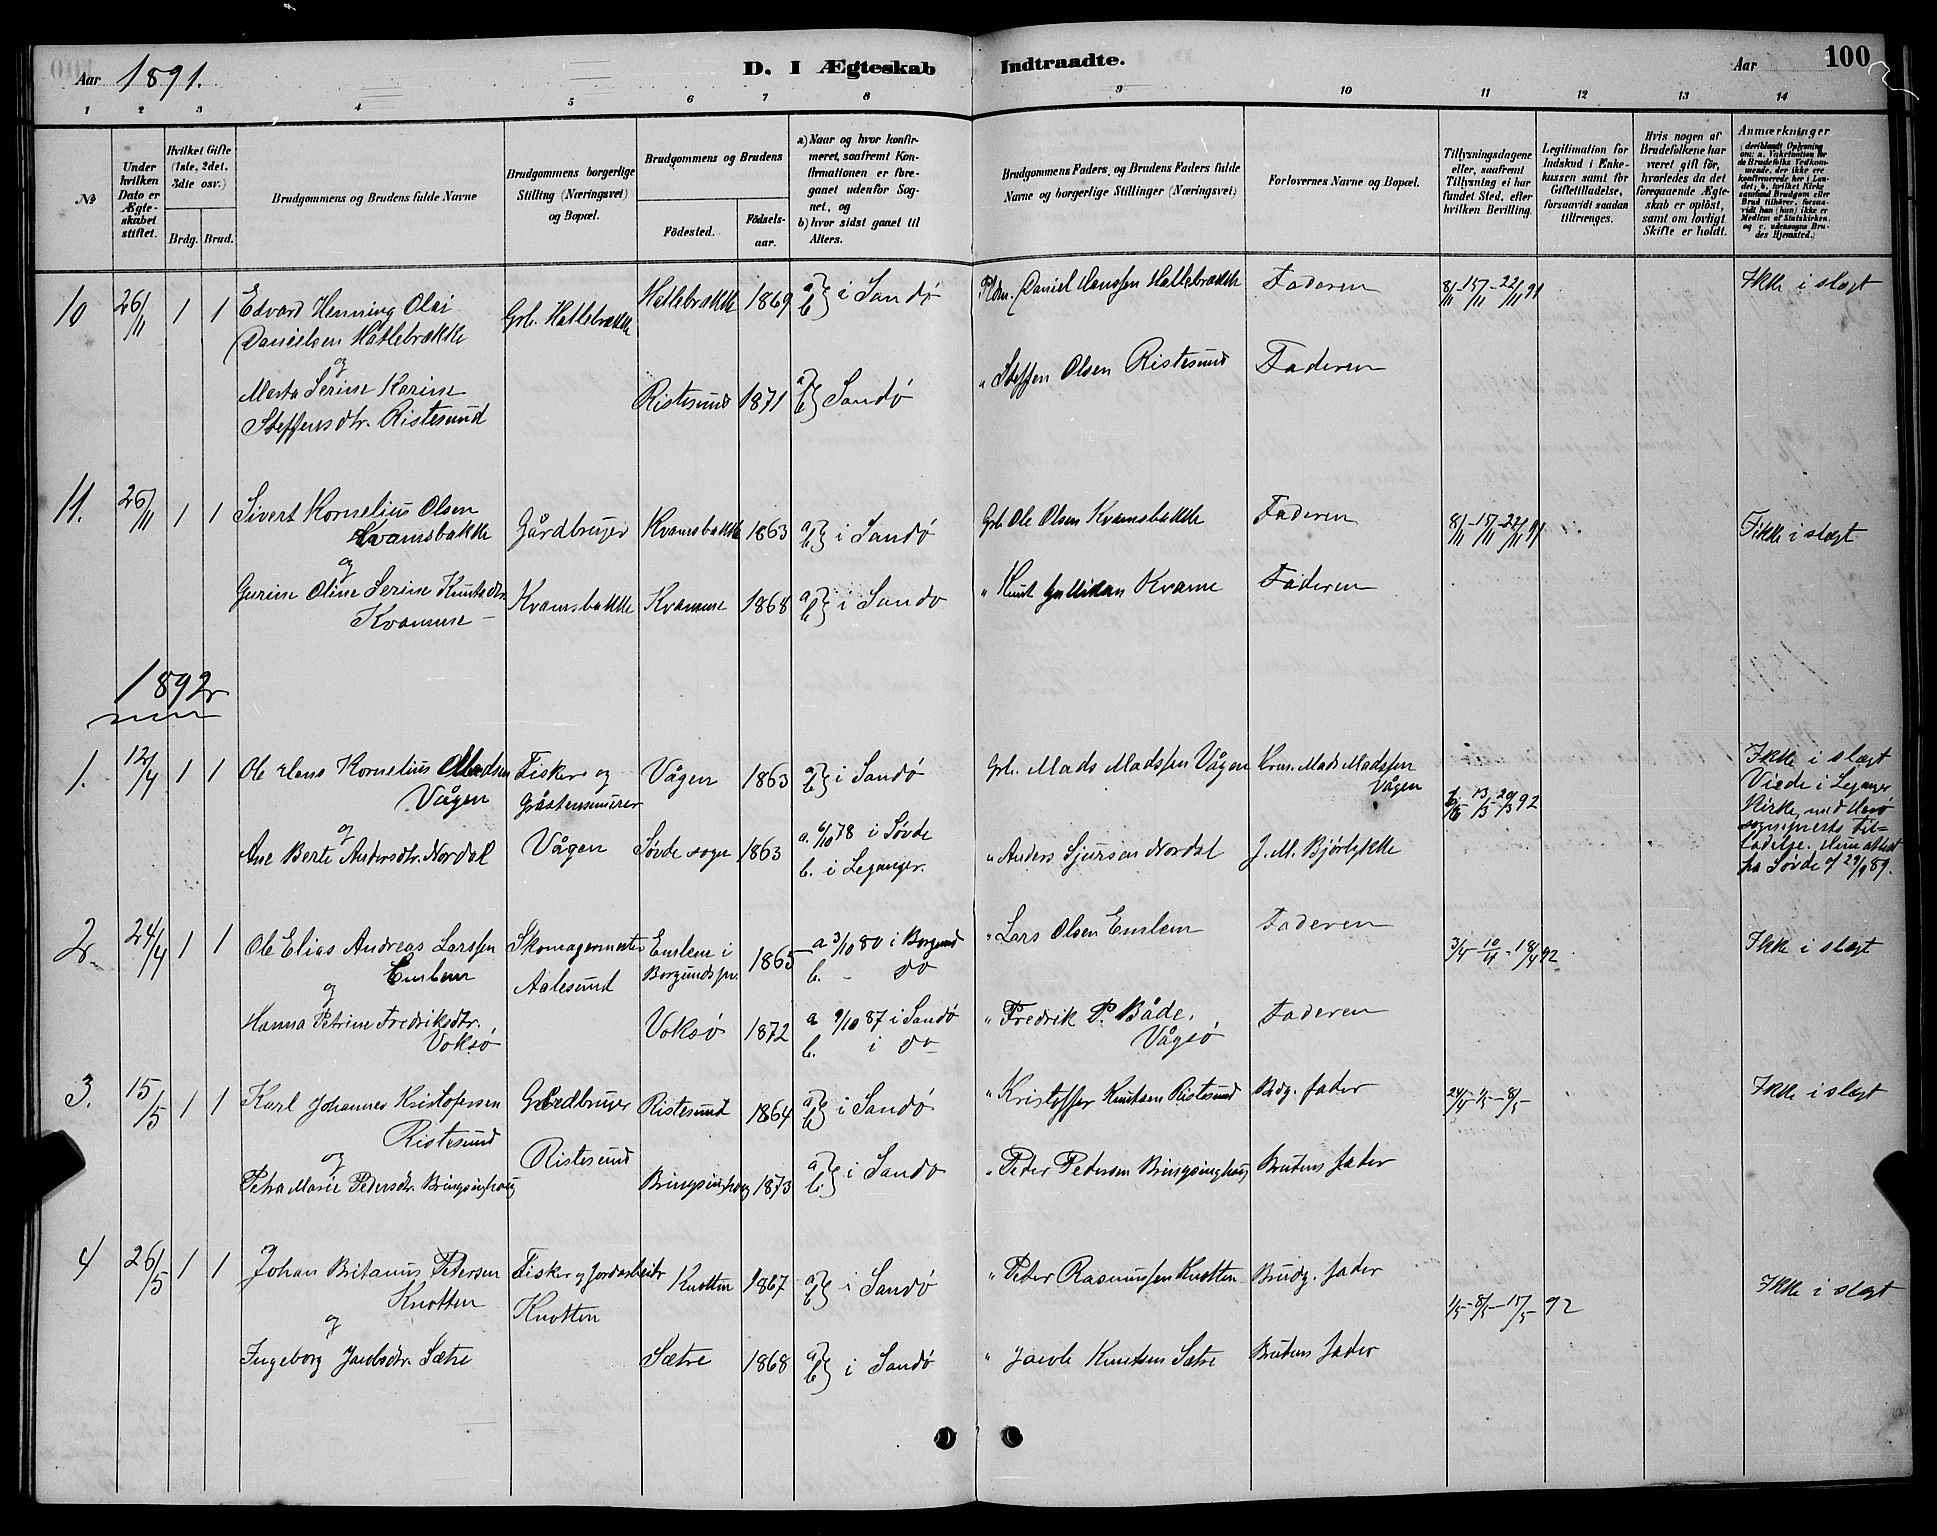 Aar 1891.
D. I Ægteskab
Indtraadte.
Aar
100
1 2 3 4 5 6 7 8 9 10 11 12 13 14
№
Under hvilken Dato er Ægteskabet stiftet.
Hvilket Gifte (1ste, 2det, 3die osv.)
Brdg. Brud.
Brudgommens og Brudens fulde Navne
Brudgommens borgerlige Stilling (Næringsvei) og Bopæl.
Brudgommens og Brudens
Födested.
Födselsaar.
a) Naar og hvor konfirmeret, saafremt Konfirmationen er foregaaet udenfor Sognet, og
b) hvor sidst gaaet til Alters.
Brudgommens Faders, og Brudens Faders fulde Navne og borgerlige Stillinger (Næringsvei)
Forlovernes Navne og Bopæl.
Tillysningsdagene eller, saafremt Tillysning ei har fundet Sted, efter hvilken Bevilling.
Legitimation for Indskud i Enkekassen samt for Giftetilladelse, forsaavidt saadan tiltrænges.
Hvis nogen af Brudefolkene har været gift för, hvorledes da det foregaaende Ægteskab er oplöst, samt om lovligt Skifte er holdt.
Anmærkninger
10 26/11 1 1 Edvard Henning Olai Danielsen Hatlebrække
Grb. Hatlebrække
Hatlebrække 1869 a) b) i Sandø
Daniel Hanssen Hatlebrække
Faderen
8/11-15/11-22/11 91
Ikke i slægt
og
Marta Serine Karine Steffensdtr. Ristesund
Ristesund 1871 a) b) Sandø
" Steffen Olsen Ristesund
Faderen
11. 26/11 1 1 Sivert Kornelius Olsen Kvamsbakke
Gårdbruger
Kvamsbakke 1863 a) b) i Sandø
Grb. Ole Olsen Kvamsbakke
Faderen
8/11-15/11-22/11 91
Ikke i slægt
og
Gurine Oline Serine Knutsdtr. Kvamme
Kvamsbakke
Kvamme 1868 a) b) i Sandø
" Knut Kvame
Faderen
1892
1. 12/4 1 1 Ole Hans Kornelius Madsen Vågen
Fisker og Gråstensmurer
Vågen 1863 a) b) i Sandø
Grb. Mads Madssen Vågen
Mads Madssen Vågen
13/3 20/3 92
Ikke i slægt
Viede i Leganger Kirke, med
og
Ane Berte Andersdtr. Nordal
Vågen
Søvde sogn 1863 a. 6/10 78 i Søvde
b. i Leganger.
" Anders Sjursen Nordal
J. M. Bjørlykke
fra Søvde af 29/9 89.
2. 24/4 1 1 Ole Elias Andreas Larssen Emblem
Skomagermester Aalesund
Emblem i Borgunds pr. 1865 a 3/10 80 i Borgund
b. - do
" Lars Olsen Emblem
Faderen
3/4-10/4-18/4 92
Ikke i slægt
og
Hanna Petrine Fredriksdtr. Voksø
Voksø 1872 a 9/10 87 i Sandø
b. i do
" Fredrik P. Både. Vågsø
Faderen
3. 15/5 1 1 Karl Johannes Kristofersen Ristesund
Gårdbruger
Ristesund 1864 a) b) i Sandø
" Kristoffer Knutsen Ristesund
Brdg. fader
24/4-1/5-8/5
Ikke i slægt
og
Petra Marie Pedersdtr. Bringsinghaug
Ristesund
Bringsinghaug 1873 a) b) i Sandø
" Peder Pedersen Bringsinghaug
Brudens fader
4 26/5 1 1 Johan Britanus Petersen Knotten
Fisker og Jordarbeidr
Knotten 1867 a) b) i Sandø
" Peter Rasmussen Knotten
Brudg. fader
1/5-8/5-15/5 92
Ikke i slægt
og
Ingeborg Jacobsdtr. Sætre
Knotten
Sætre 1868 a) b) i Sandø
" Jacob Knutsen Sætre
Brudens fader